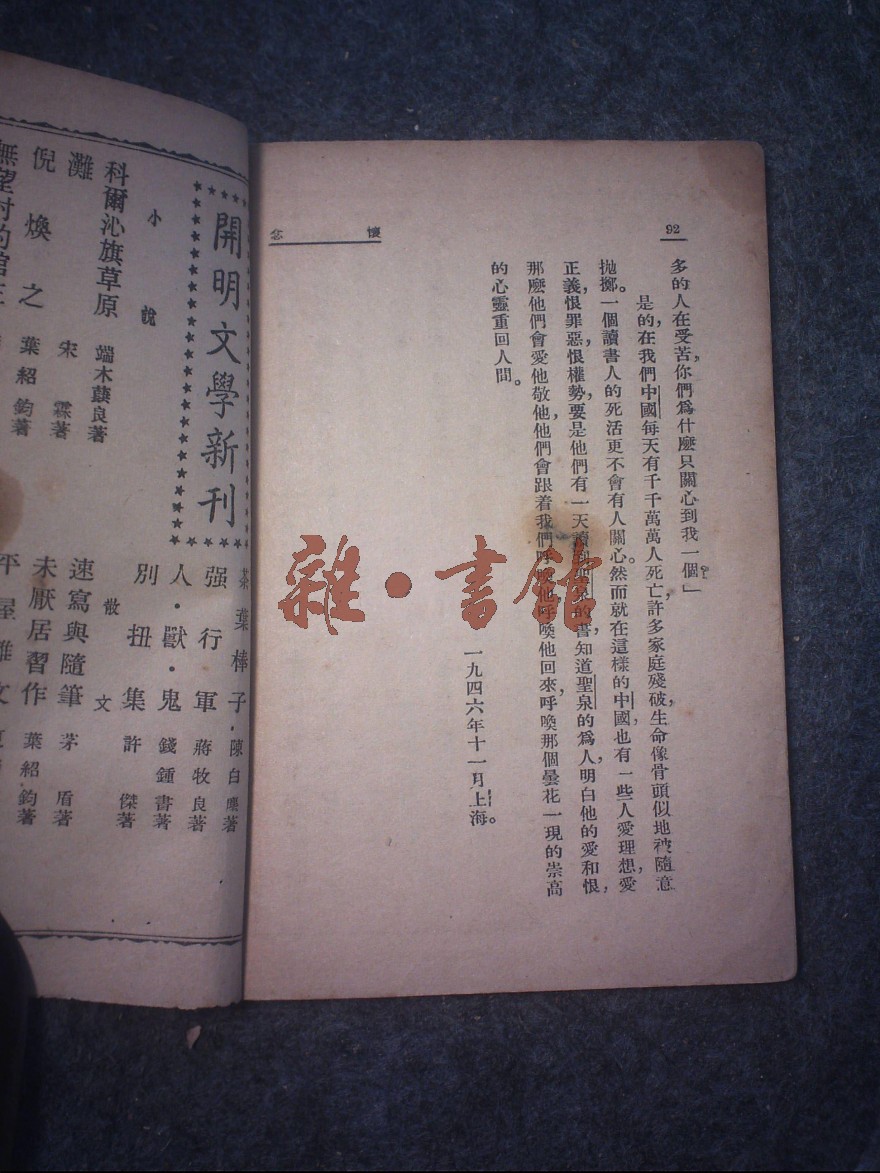 92
懷念
多的人在受苦，你們爲什麽只關心到我一個」
是的，在我們中國每天有千千萬萬人死亡，許多家庭殘破，生命像骨頭似地被隨意
拋擲。一個讀書人的死活更不會有人關心。然而就在這樣的中國，也有一些人愛理想，愛
正義，恨罪惡，恨權勢，要是他們有一天讀到聖泉的書，知道聖泉的爲人，明白他的愛和恨，
那麽他們會愛他敬他，他們會跟着我們呼喚他，呼喚他回來，呼喚那個曇花一現的崇高
的心靈重回人間。
一九四六年十一月上海。
開明文學新刊
小說
科爾沁旗草原 端木蕻良著
灘 宋霖著
倪煥之 葉紹鈞著
茶葉棒子 陳白塵著
强行軍 蔣牧良著
人·獸·鬼 錢鍾書著
別扭集 許傑著
散文
速寫與隨筆 茅盾著
未厭居習作 葉紹鈞著
平屋雜文
雜·書館